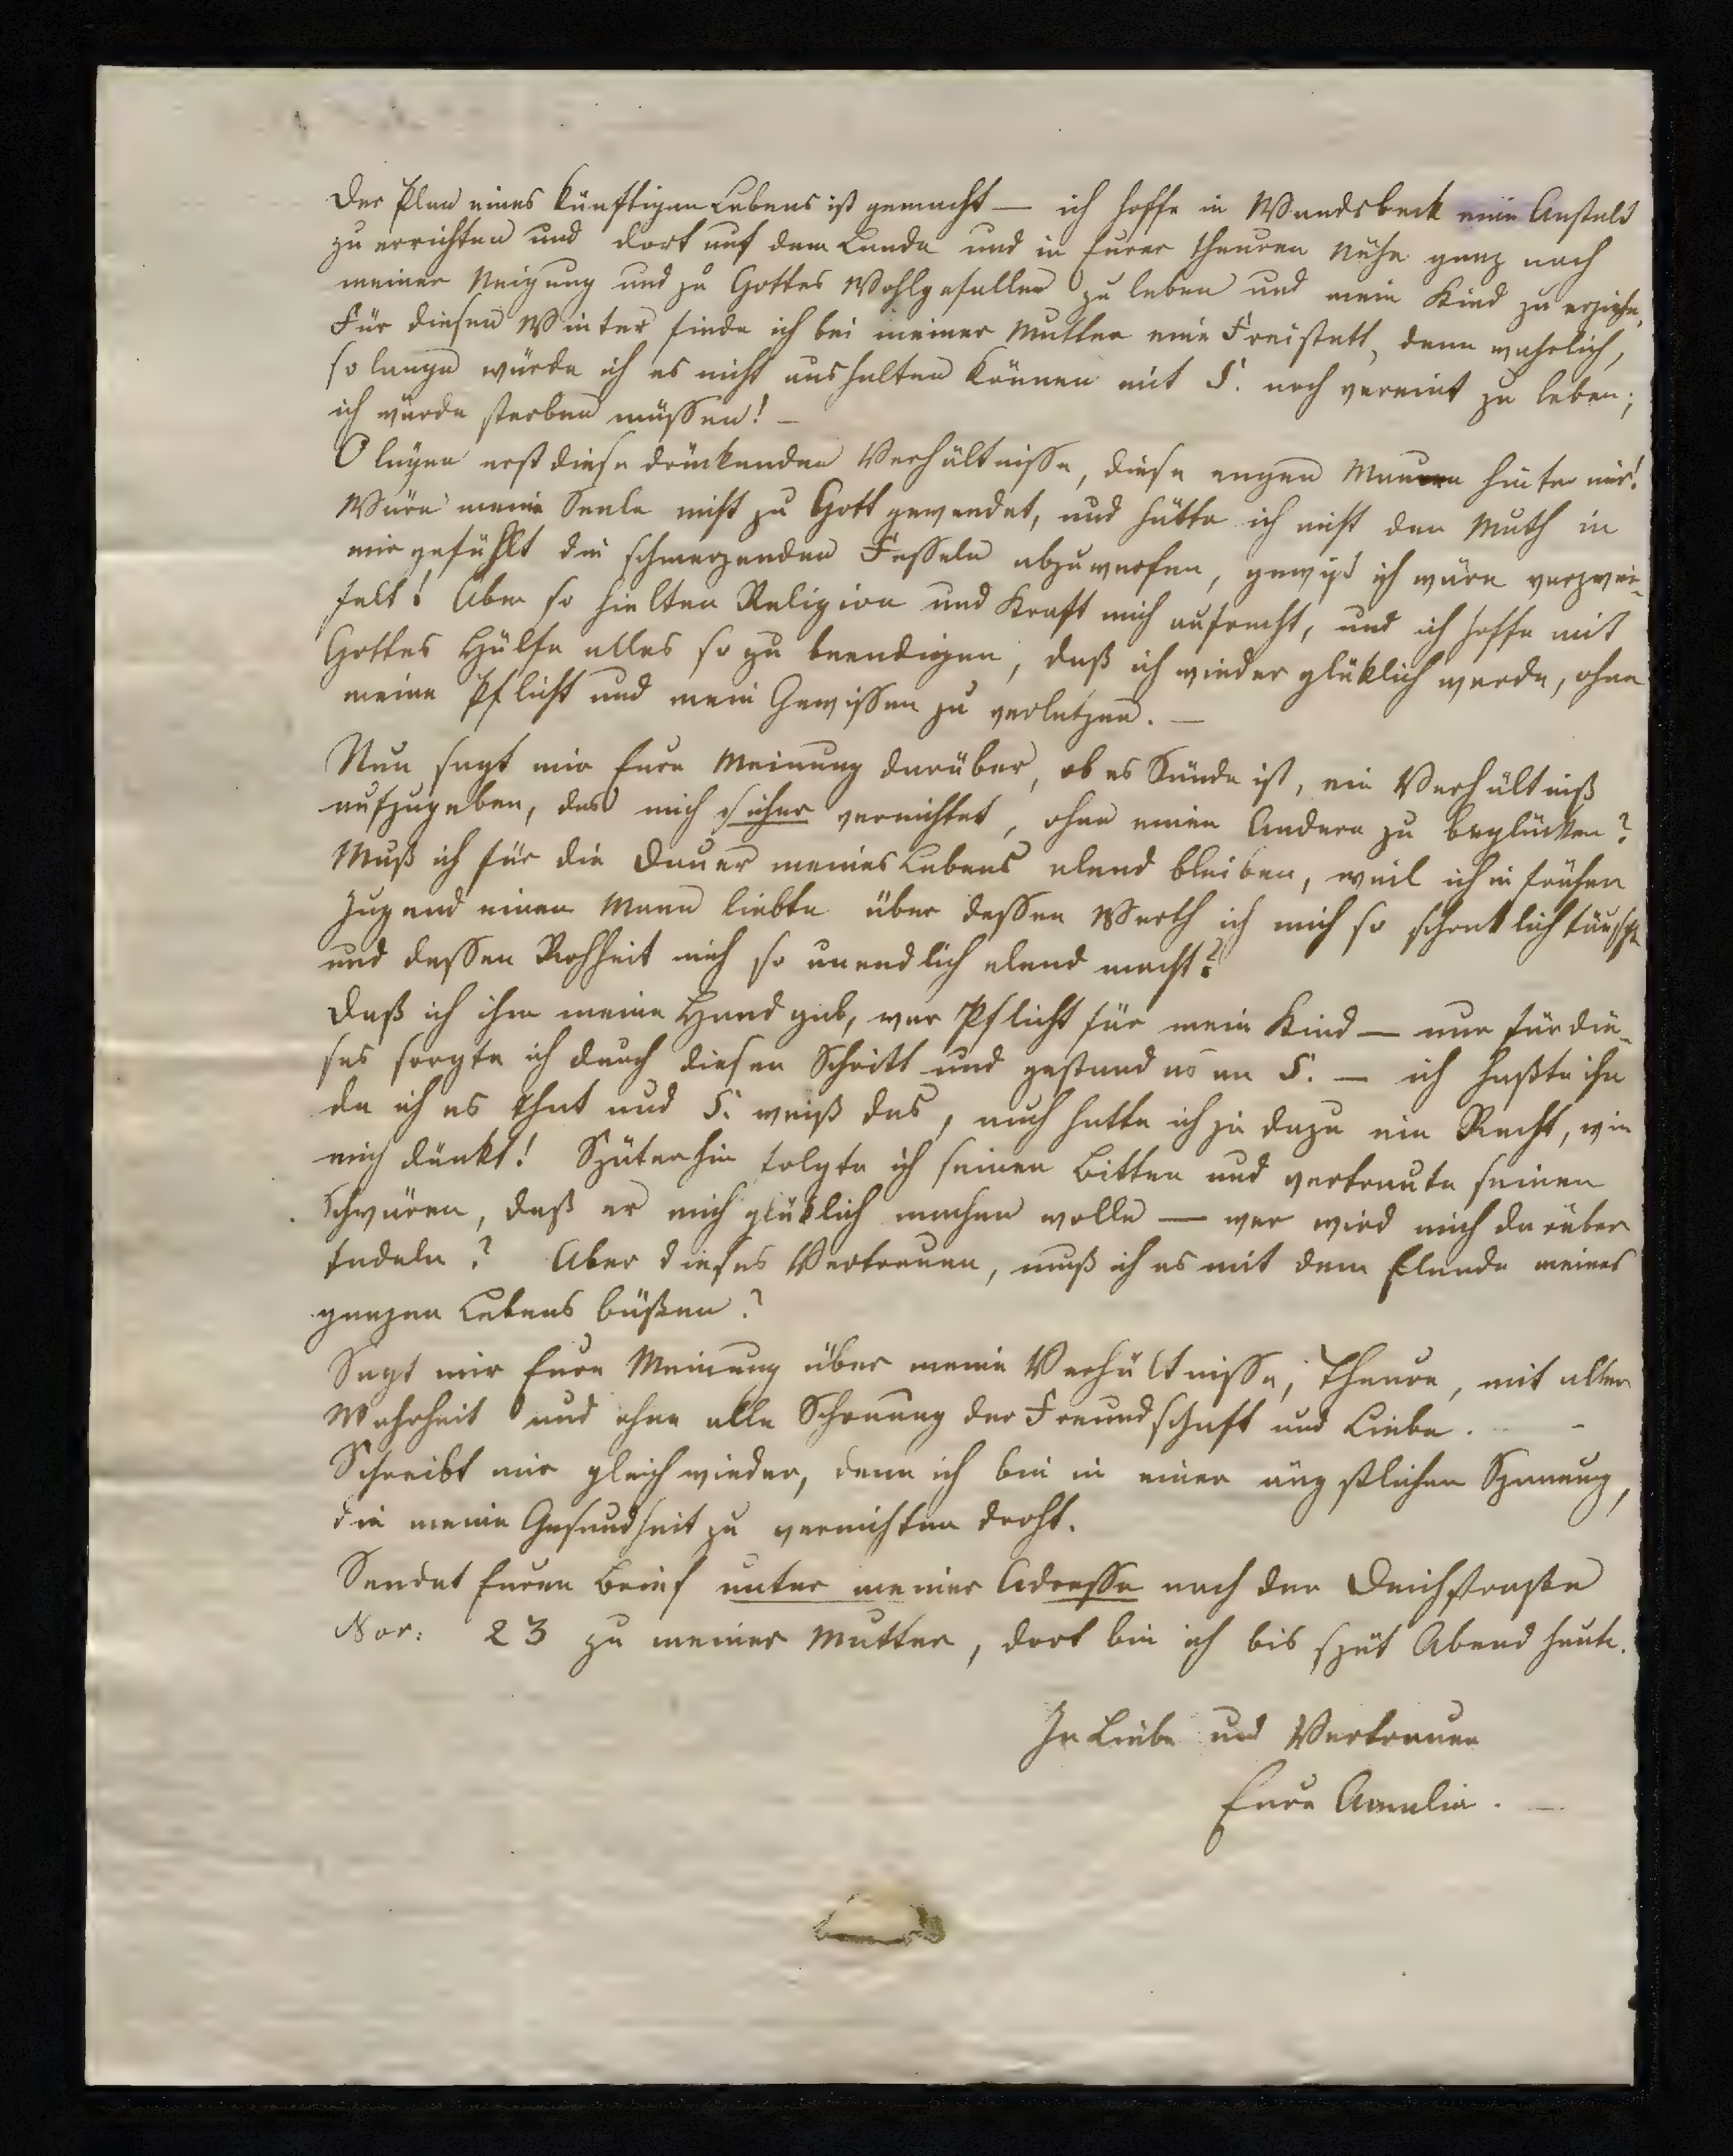 Der Plan eines künftigen Lebens ist gemacht — ich hoffe in Wandsbeck eine Anstalt
zu errichten und dort auf dem Lande und in Eurer theuren Nähe ganz nach
meiner Neigung und zu Gottes Wohlgefallen zu leben und mein Kind zu erziehn.
Für diesen Winter finde ich bei meiner Mutter eine Freistatt, denn wahrlich,
so lange würde ich es nicht aushalten können mit S. noch vereint zu leben;
ich würde sterben müssen! —
O lägen erst diese drückenden Verhältnisse, diese engen Mauern hinter mir!
Wäre meine Seele nicht zu Gott gewendet, und hätte ich nicht den Muth in
mir gefühlt die schmerzenden Fesseln abzuwerfen, gewiß ich wäre verzwei-
felt! Aber so hielten Religion und Kraft mich aufrecht, und ich hoffe mit
Gottes Hülfe alles so zu beendigen, daß ich wieder glüklich werde, ohne
meine Pflicht und mein Gewissen zu verletzen. —
Nun sagt mir Eure Meinung darüber, ob es Sünde ist, ein Verhältniß
aufzugeben, das mich sicher vernichtet, ohne einen Andern zu beglücken?
Muß ich für die Dauer meines Lebens elend bleiben, weil ich in früher
Jugend einen Mann liebte über dessen Werth ich mich so schrecklich täuschte
und dessen Rohheit mich so unendlich elend macht?
Daß ich ihm meine Hand gab, war Pflicht für mein Kind — nur für die-
ses sorgte ich durch diesen Schritt und gestand es an S. — ich haßte ihn
da ich es that und S. weiß das, auch hatte ich ja dazu ein Recht, wie
mich dünkt! Späterhin folgte ich seinen Bitten und vertraute seinen
Schwüren, daß er mich glüklich machen wolle — wer wird mich darüber
tadeln? Aber dieses Vertrauen, muß ich es mit dem Elende meines
ganzen Lebens büßen?
Sagt mir Eure Meinung über meine Verhältnisse, Theure, mit aller
Wahrheit und ohne alle Schonung der Freundschaft und Liebe. —
Schreibt mir gleich wieder, denn ich bin in einer ängstlichen Spannung,
die meine Gesundheit zu vernichten droht.
Sendet Euren Brief unter meiner Adresse nach der Deichstraße
Nor: 23 zu meiner Mutter, dort bin ich bis spät Abend heute.
In Liebe und Vertrauen
Eure Amalia. —